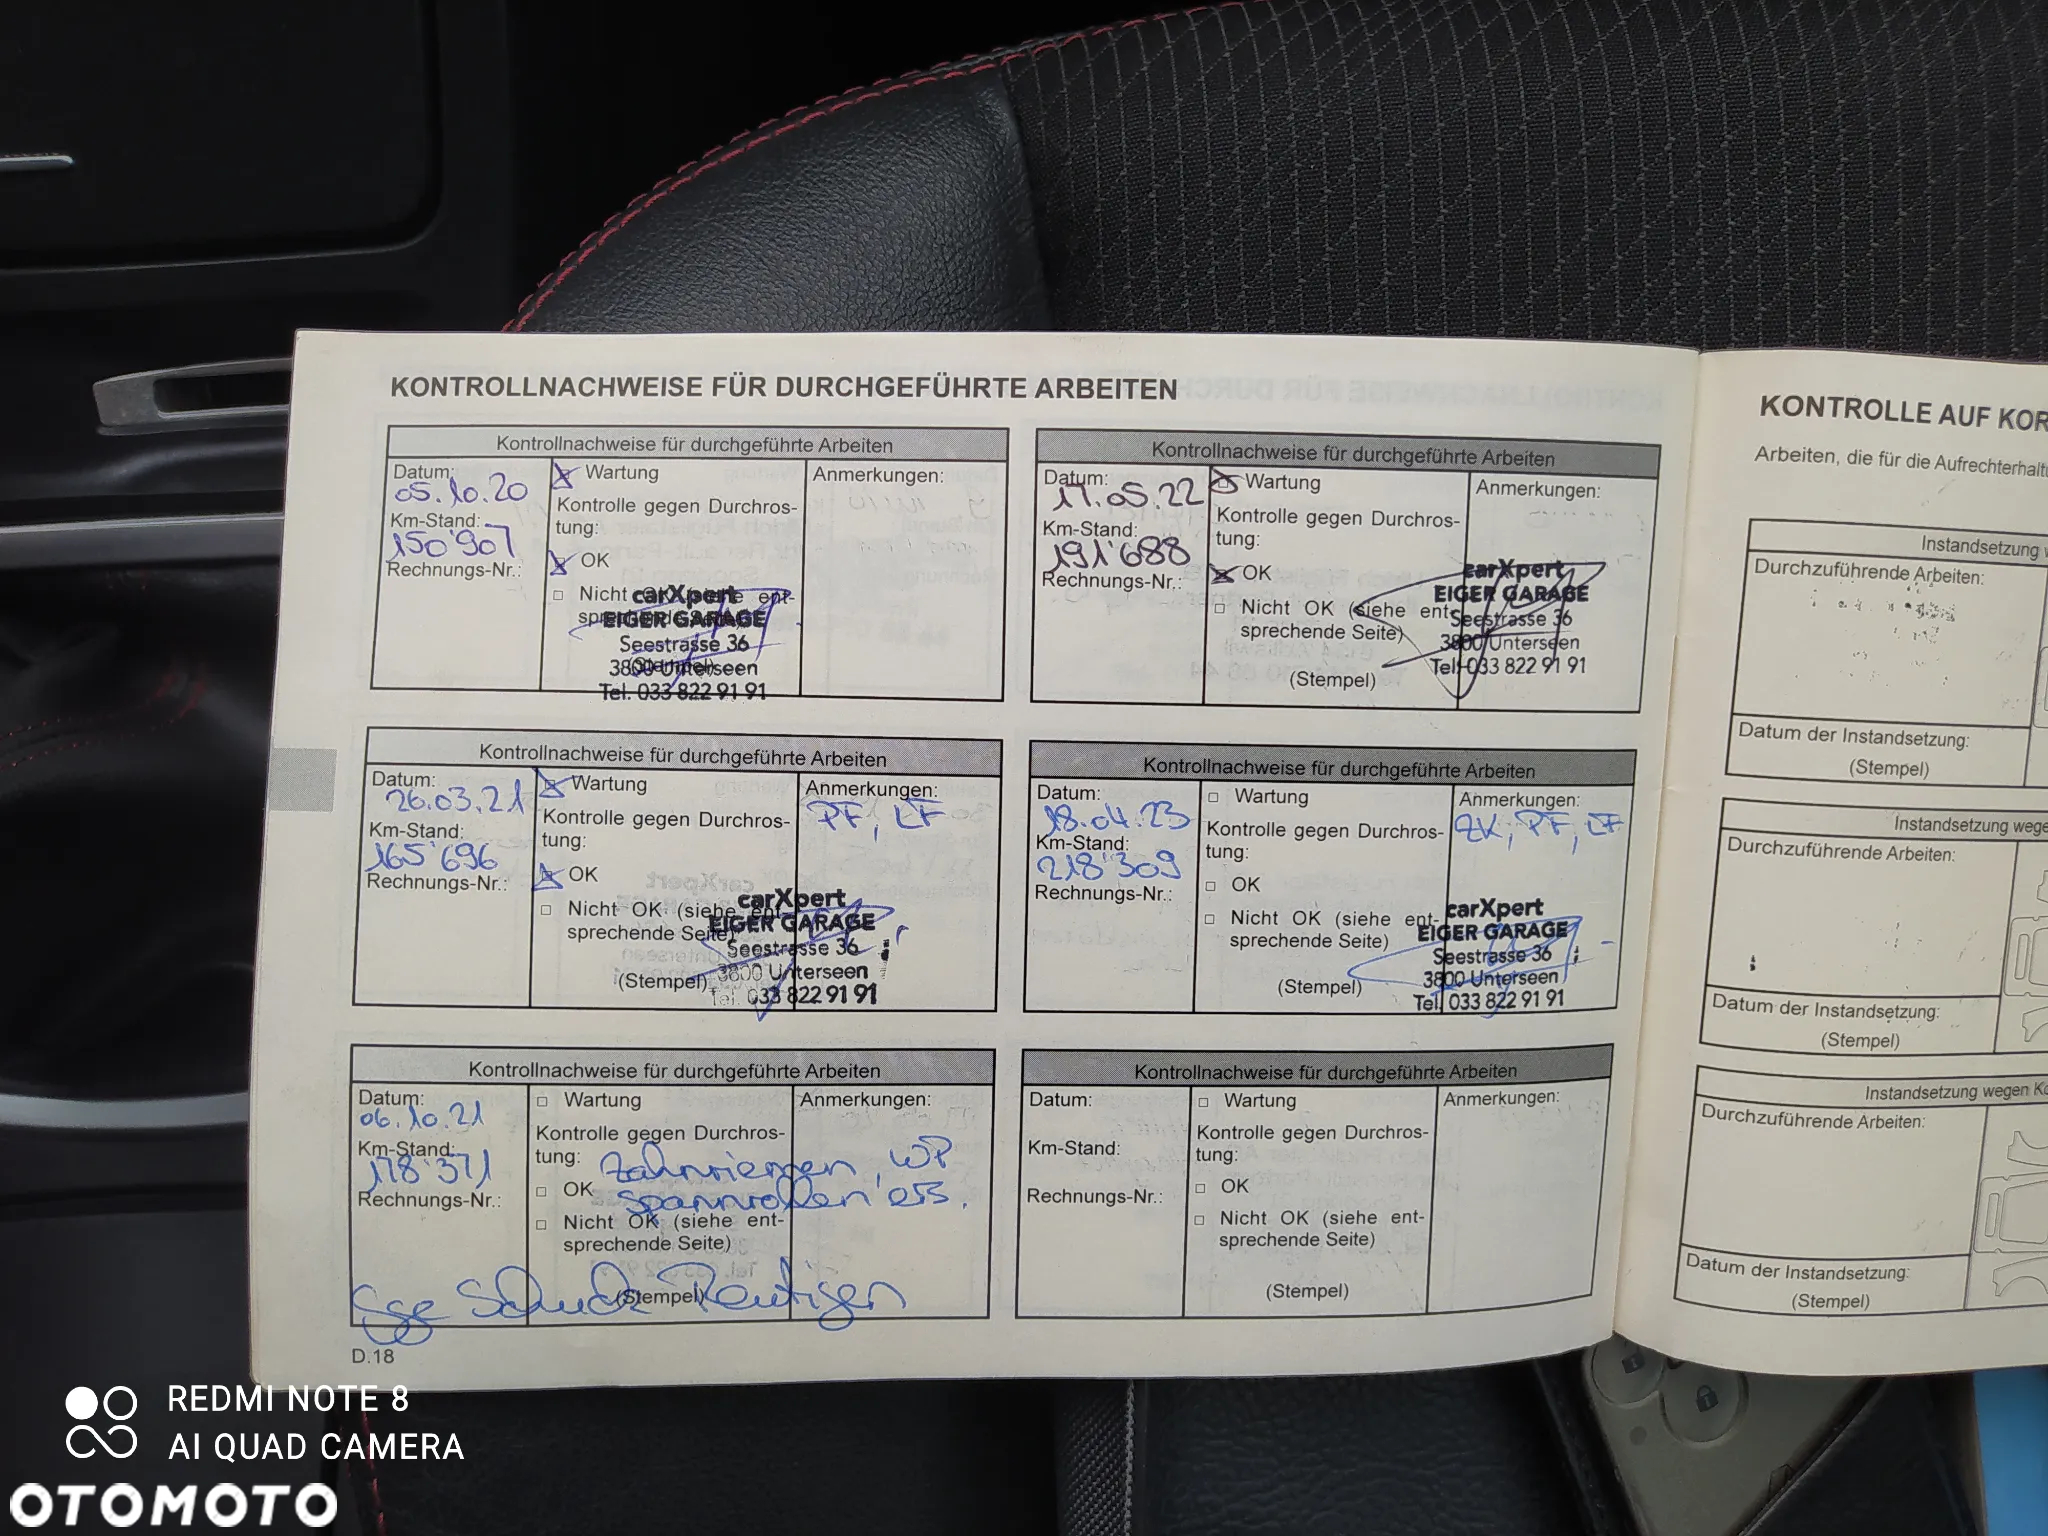 KONTROLLNACHWEISE FÜR DURCHGEFÜHRTE ARBEITEN
Kontrollnachweise für durchgeführte Arbeiten
Datum:
05.10.20
Km-Stand:
150'907
Rechnungs-Nr.:
Wartung
Kontrolle gegen Durchros-
tung:
OK
Nicht
(Stempel)
carXpert
EIGER GARAGE
Seestrasse 36
3800 Unterseen
Tel. 033 822 91 91
Anmerkungen:
Kontrollnachweise für durchgeführte Arbeiten
Datum:
17.05.22
Km-Stand:
191'688
Rechnungs-Nr.:
Wartung
Kontrolle gegen Durchros-
tung:
OK
Nicht OK (siehe ent-
sprechende Seite)
(Stempel)
Anmerkungen:
carXpert
EIGER GARAGE
Seestrasse 36
3800 Unterseen
Tel. 033 822 91 91
Kontrollnachweise für durchgeführte Arbeiten
Datum:
26.03.21
Km-Stand:
165'696
Rechnungs-Nr.:
Wartung
Kontrolle gegen Durchros-
tung:
OK
Nicht OK (siehe ent-
sprechende Seite)
(Stempel)
Anmerkungen:
PF, LF
carXpert
EIGER GARAGE
Seestrasse 36
3800 Unterseen
Tel. 033 822 91 91
Kontrollnachweise für durchgeführte Arbeiten
Datum:
18.04.23
Km-Stand:
218'309
Rechnungs-Nr.:
Wartung
Kontrolle gegen Durchros-
tung:
OK
Nicht OK (siehe ent-
sprechende Seite)
(Stempel)
Anmerkungen:
ZK, PF, LF
carXpert
EIGER GARAGE
Seestrasse 36
3800 Unterseen
Tel. 033 822 91 91
Kontrollnachweise für durchgeführte Arbeiten
Datum:
06.10.21
Km-Stand:
178'371
Rechnungs-Nr.:
Wartung
Kontrolle gegen Durchros-
tung:
Zahnriemen, WP
OK
Spannrollen ers.
Nicht OK (siehe ent-
sprechende Seite)
(Stempel)
Anmerkungen:
Reutigen
Kontrollnachweise für durchgeführte Arbeiten
Datum:
Km-Stand:
Rechnungs-Nr.:
Wartung
Kontrolle gegen Durchros-
tung:
OK
Nicht OK (siehe ent-
sprechende Seite)
(Stempel)
Anmerkungen:
D.18
KONTROLLE AUF KOR
Arbeiten, die für die Aufrechterhalt
Instandsetzung w
Durchzuführende Arbeiten:
Datum der Instandsetzung:
(Stempel)
Instandsetzung wege
Durchzuführende Arbeiten:
Datum der Instandsetzung:
(Stempel)
Instandsetzung wegen Ko
Durchzuführende Arbeiten:
Datum der Instandsetzung:
(Stempel)
REDMI NOTE 8
AI QUAD CAMERA
OTOMOTO